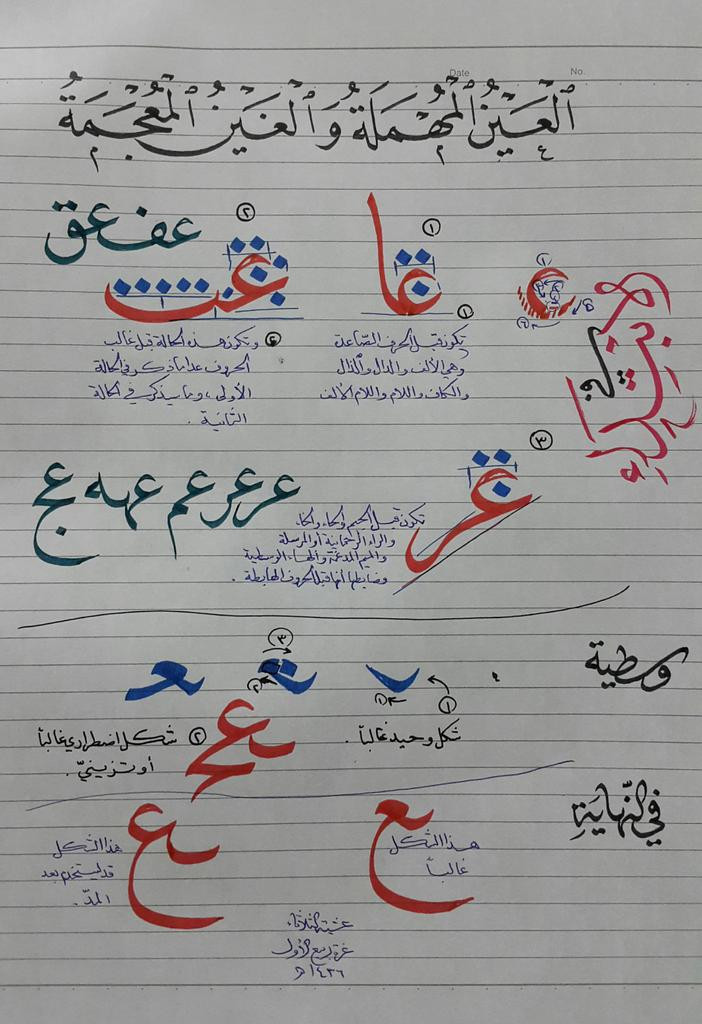 No.
Date
اَلْعَيْنُ الْمُهْمَلَةُ وَالْغَيْنُ الْمُعْجَمَةُ
١
غا
٢
غت
عف عق
١ تكون قبل الحروف الصّاعدة
وهي الألف والدال والذال
والكاف واللام واللام الألف
٢ وتكون هذه الحالة قبل غالب
الحروف عدا ما ذكر في الحالة
الأولى، وما سيذكر في الحالة
الثانية.
٣
غر
تكون قبل الجيم والحاء والخاء
والراء الرحمانية أو المرسلة
والميم المدغمة والهاء الوسطية
وضابطها أنها قبل الحروف الهابطة.
عر عر عم عهه عج
وسطية
١
٢
٣
شكل وحيد غالباً.
٢ شكل اضطراري غالباً
أو تزيينيّ.
في النّهايةِ
هذا الشكل
غالباً
هذا الشكل
قد يستخدم بعد
المدّ.
عشية الثلاثاء
غرة ربيع الأول
١٤٣٦ هـ